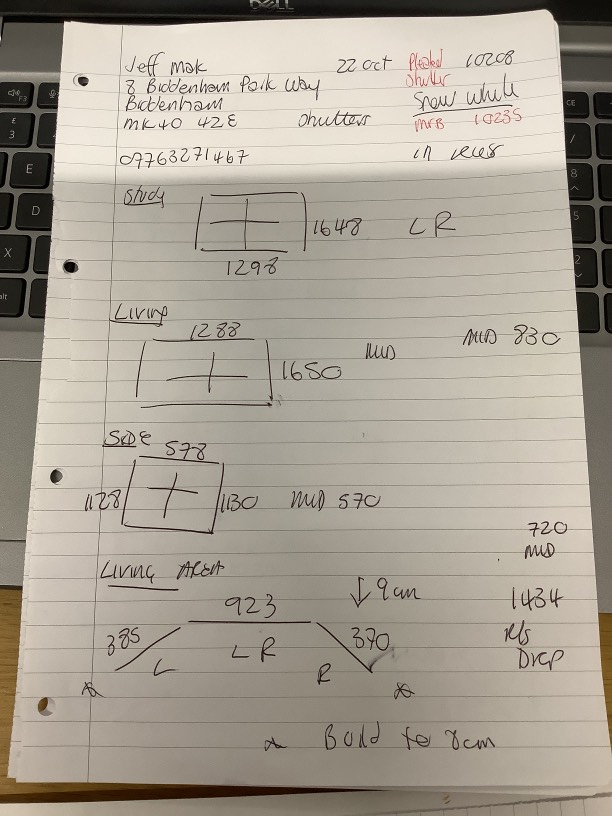 DELL
Jeff Mak 22 Oct Pleated 10208
8 Biddenham Park Way Shutter
Biddenham Snow white
MK40 42E Shutters MFB 10235
07763271467 in recess
Study
1648 L R
1298
Living
1288
1650 MID MID 830
SIDE
578
1128 1130 MID 570
720
MID
LIVING AREA
923 ↓ 9cm 1434
385 370 Drop
L L R R
* Build to 8cm